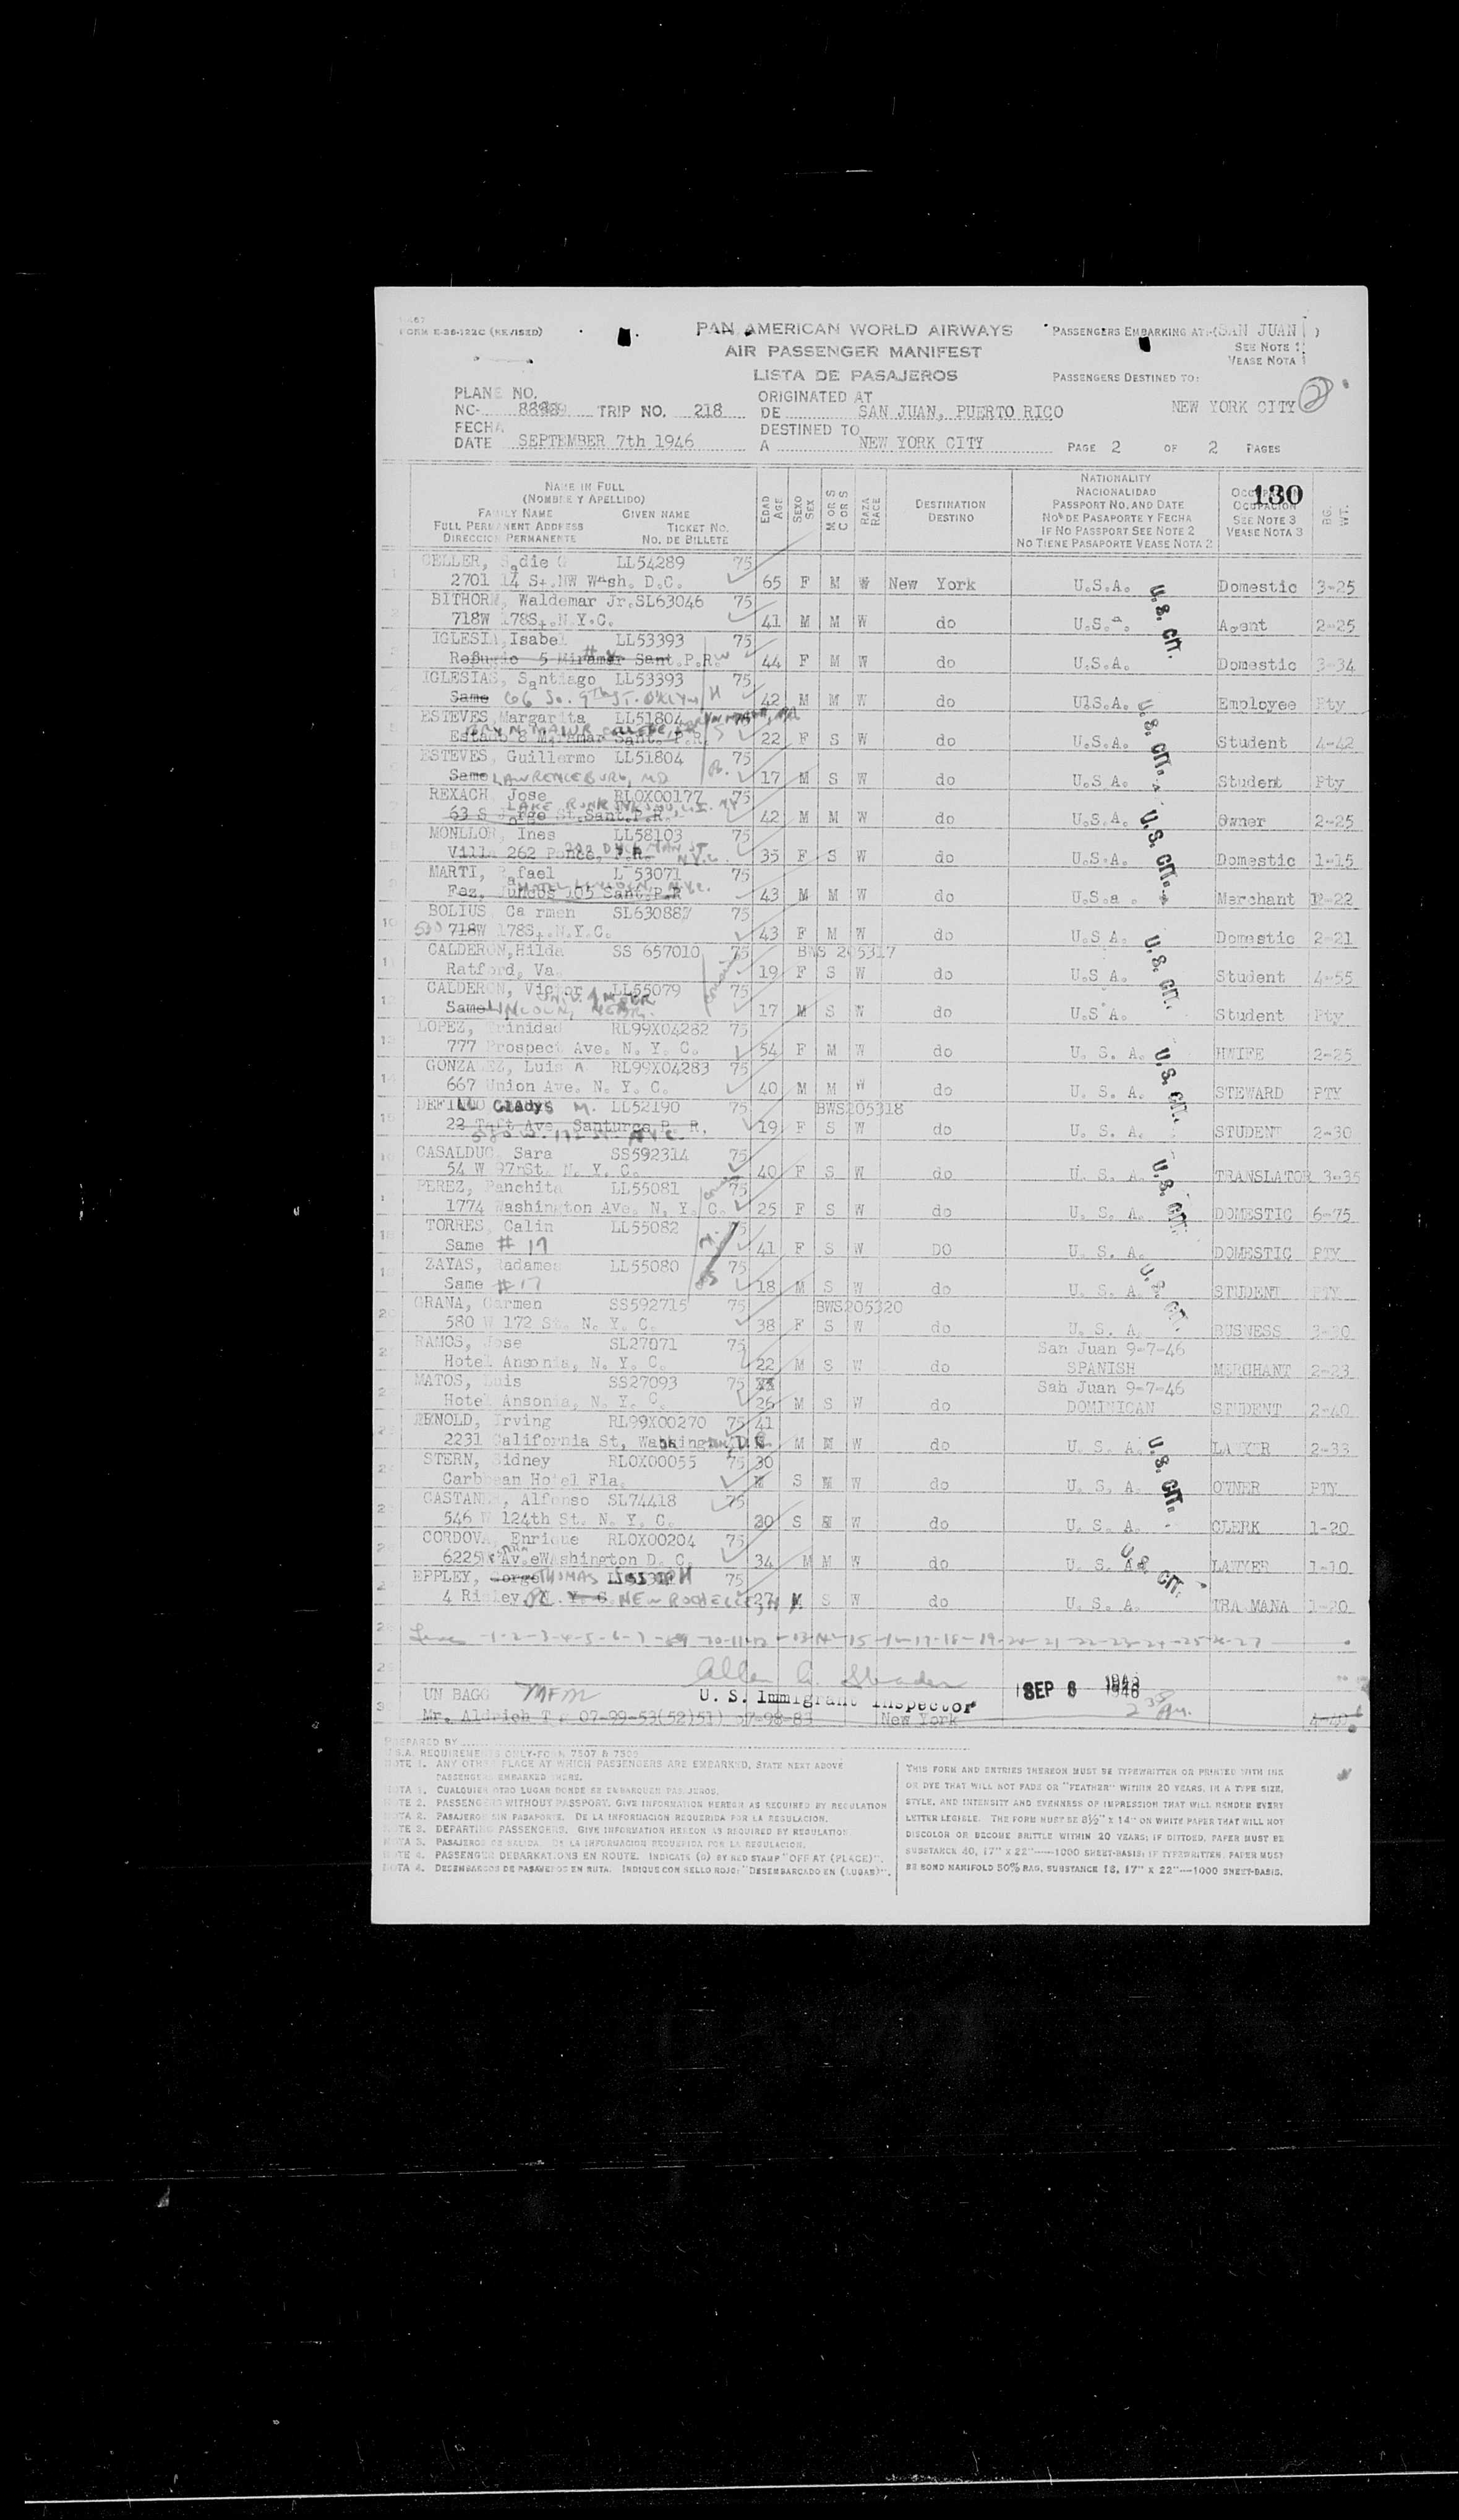 FORM E-38-122C (REVISED)
PAN AMERICAN WORLD AIRWAYS
PASSENGERS EMBARKING AT:-(SAN JUAN )
AIR PASSENGER MANIFEST
SEE NOTE 1
VEASE NOTA 1
LISTA DE PASAJEROS
PASSENGERS DESTINED TO:
PLANE NO.
ORIGINATED AT
NC- TRIP NO. 218 DE SAN JUAN, PUERTO RICO NEW YORK CITY 2
FECHA DESTINED TO
DATE SEPTEMBER 7th 1946 A NEW YORK CITY PAGE 2 OF 2 PAGES
NAME IN FULL
(NOMBRE Y APELLIDO)
FAMILY NAME GIVEN NAME
FULL PERMANENT ADDRESS TICKET NO.
DIRECCION PERMANENTE NO. DE BILLETE
EDAD AGE
SEXO SEX
M OR S
C OR S
RAZA RACE
DESTINATION
DESTINO
NATIONALITY
NACIONALIDAD
PASSPORT NO. AND DATE
NO. DE PASAPORTE Y FECHA
IF NO PASSPORT SEE NOTE 2
NO TIENE PASAPORTE VEASE NOTA 2
130
OCUPACION
SEE NOTE 3
VEASE NOTA 3
BG. WT.
LL54289 75
2701 14 St.NW Wash. D.C. 65 F M W New York U.S.A. Domestic 3-25
BITHORN, Waldemar Jr.SL63046 75
718W 178St.N.Y.C. 41 M M W do U.S.a. Agent 2-25
IGLESIA,Isabel LL53393 75
Refugio 5 Miramar Sant.P.R. 44 F M W do U.S.A. Domestic 3-34
IGLESIAS, Santiago LL53393 75
Same 66 So. 9th ST. BKLYN 42 M M W do UlS.A. Employee Pty
ESTEVES,Margarita LL51804 75
Estado 8 Miramar Sant. P.R. 22 F S W do U.S.A. Student 4-42
ESTEVES, Guillermo LL51804 75
Same LAWRENCEBURG, MD 17 M S W do U.S.A. Student Pty
REXACH Jose RLOX00177 75
63 S Jorge St.Sant.P.R. 42 M M W do U.S.A. Owner 2-25
MONLLOR, Ines LL58103 75
Villa 262 Ponce, P.R. N.Y.C. 35 F S W do U.S.A. Domestic 1-15
MARTI, Rafael L 53071 75
Fez. Juncos 105 Sant.P.R 43 M M W do U.S.a . Merchant 2-22
BOLIUS Ca rmen 75
718W 178St.N.Y.C. 43 F M W do U.S.A. Domestic 2-21
CALDERON,Hilda SS 657010 75 BWS 205317
Ratford, Va. 19 F S W do U.S.A. Student 4-55
CALDERON, Victor LL55079 75
Same LINCOLN, NEBR. 17 M S W do U.S.A. Student Pty
LOPEZ, Trinidad RL99X04282 75
777 Prospect Ave. N. Y. C. 54 F M W do U. S. A. HWIFE 2-25
GONZALEZ, Luis A RL99X04283 75
667 Union Ave. N. Y. C. 40 M M W do U. S. A. STEWARD PTY
Gladys M. LL52190 75 BWS205318
22 Taft Ave. Santurce P. R. 19 F S W do U. S. A. STUDENT 2-30
CASALDUC, Sara SS592314 75
54 W 97 St. N. Y. C. 40 F S W do U. S. A. TRANSLATOR 3-35
PEREZ, Panchita LL55081 75
1774 Washington Ave. N. Y. C. 25 F S W do U. S. A. DOMESTIC 6-75
TORRES, Calin LL55082 75
Same # 17 41 F S W DO U. S. A. DOMESTIC PTY
ZAYAS, Radames LL55080 75
Same # 17 18 M S W do U. S. A. STUDENT PTY
GRANA, Carmen SS592715 75 BWS205320
580 W 172 St. N. Y. C. 38 F S W do U. S. A. BUSNESS
RAMOS, Jose SL27071 75 San Juan 9-7-46
Hotel Ansonia, N. Y. C. 22 M S W do SPANISH MERCHANT 2-23
MATOS, Luis SS27093 75 San Juan 9-7-46
Hotel Ansonia, N. Y. C. 26 M S W do DOMINICAN STUDENT 2-40
Irving RL99X00270 75 41
2231 California St, Washington, D.C. M W do U. S. A. 2-33
STERN, Sidney RLOX00055 75 30
Carbbean Hotel Fla. S W do U. S. A. OWNER PTY
Alfonso SL74418 75
546 W 124th St. N. Y. C. 20 S W do U. S. A. CLERK 1-20
CORDOVA, Enrique RLOX00204 75
Washington D. C. 34 M M W do U. S. A. LAWYER 1-10
EPPLEY, THOMAS JOSEPH 75
4 Risley PL. NEW ROCHELLE, 27 S W do U. S. A. 1-20
U.S. CIT.
U.S. CIT.
U.S. CIT.
U.S. CIT.
U.S. CIT.
U.S. CIT.
U.S. CIT.
U.S. CIT.
U.S. CIT.
UN BAGG MFM
U. S. Immigrant Inspector
New York
SEP 8 1946
Mr. Aldrich
PREPARED BY
U.S.A. REQUIREMENTS ONLY-FORM 7507 & 7509
NOTE 1. ANY OTHER PLACE AT WHICH PASSENGERS ARE EMBARKED, STATE NEXT ABOVE
PASSENGERS EMBARKED THERE.
NOTA 1. CUALQUIER OTRO LUGAR DONDE SE EMBARQUEN PASAJEROS.
NOTE 2. PASSENGERS WITHOUT PASSPORT. GIVE INFORMATION HEREON AS REQUIRED BY REGULATION
NOTA 2. PASAJEROS SIN PASAPORTE. DE LA INFORMACION REQUERIDA POR LA REGULACION.
NOTE 3. DEPARTING PASSENGERS. GIVE INFORMATION HEREON AS REQUIRED BY REGULATION.
NOTA 3. PASAJEROS DE SALIDA. DE LA INFORMACION REQUERIDA POR LA REGULACION.
NOTE 4. PASSENGER DEBARKATIONS EN ROUTE. INDICATE (G) BY RED STAMP "OFF AT (PLACE)".
NOTA 4. DESEMBARCOS DE PASAJEROS EN RUTA. INDIQUE CON SELLO ROJO: "DESEMBARCADO EN (LUGAR)".
THIS FORM AND ENTRIES THEREON MUST BE TYPEWRITTEN OR PRINTED WITH INK
OR DYE THAT WILL NOT FADE OR "FEATHER" WITHIN 20 YEARS, IN A TYPE SIZE,
STYLE, AND INTENSITY AND EVENNESS OF IMPRESSION THAT WILL RENDER EVERY
LETTER LEGIBLE. THE FORM MUST BE 8½" X 14" ON WHITE PAPER THAT WILL NOT
DISCOLOR OR BECOME BRITTLE WITHIN 20 YEARS; IF DITTOED, PAPER MUST BE
SUBSTANCE 40, 17" X 22"----1000 SHEET-BASIS; IF TYPEWRITTEN, PAPER MUST
BE BOND MANIFOLD 50% RAG, SUBSTANCE 18, 17" X 22"---1000 SHEET-BASIS.